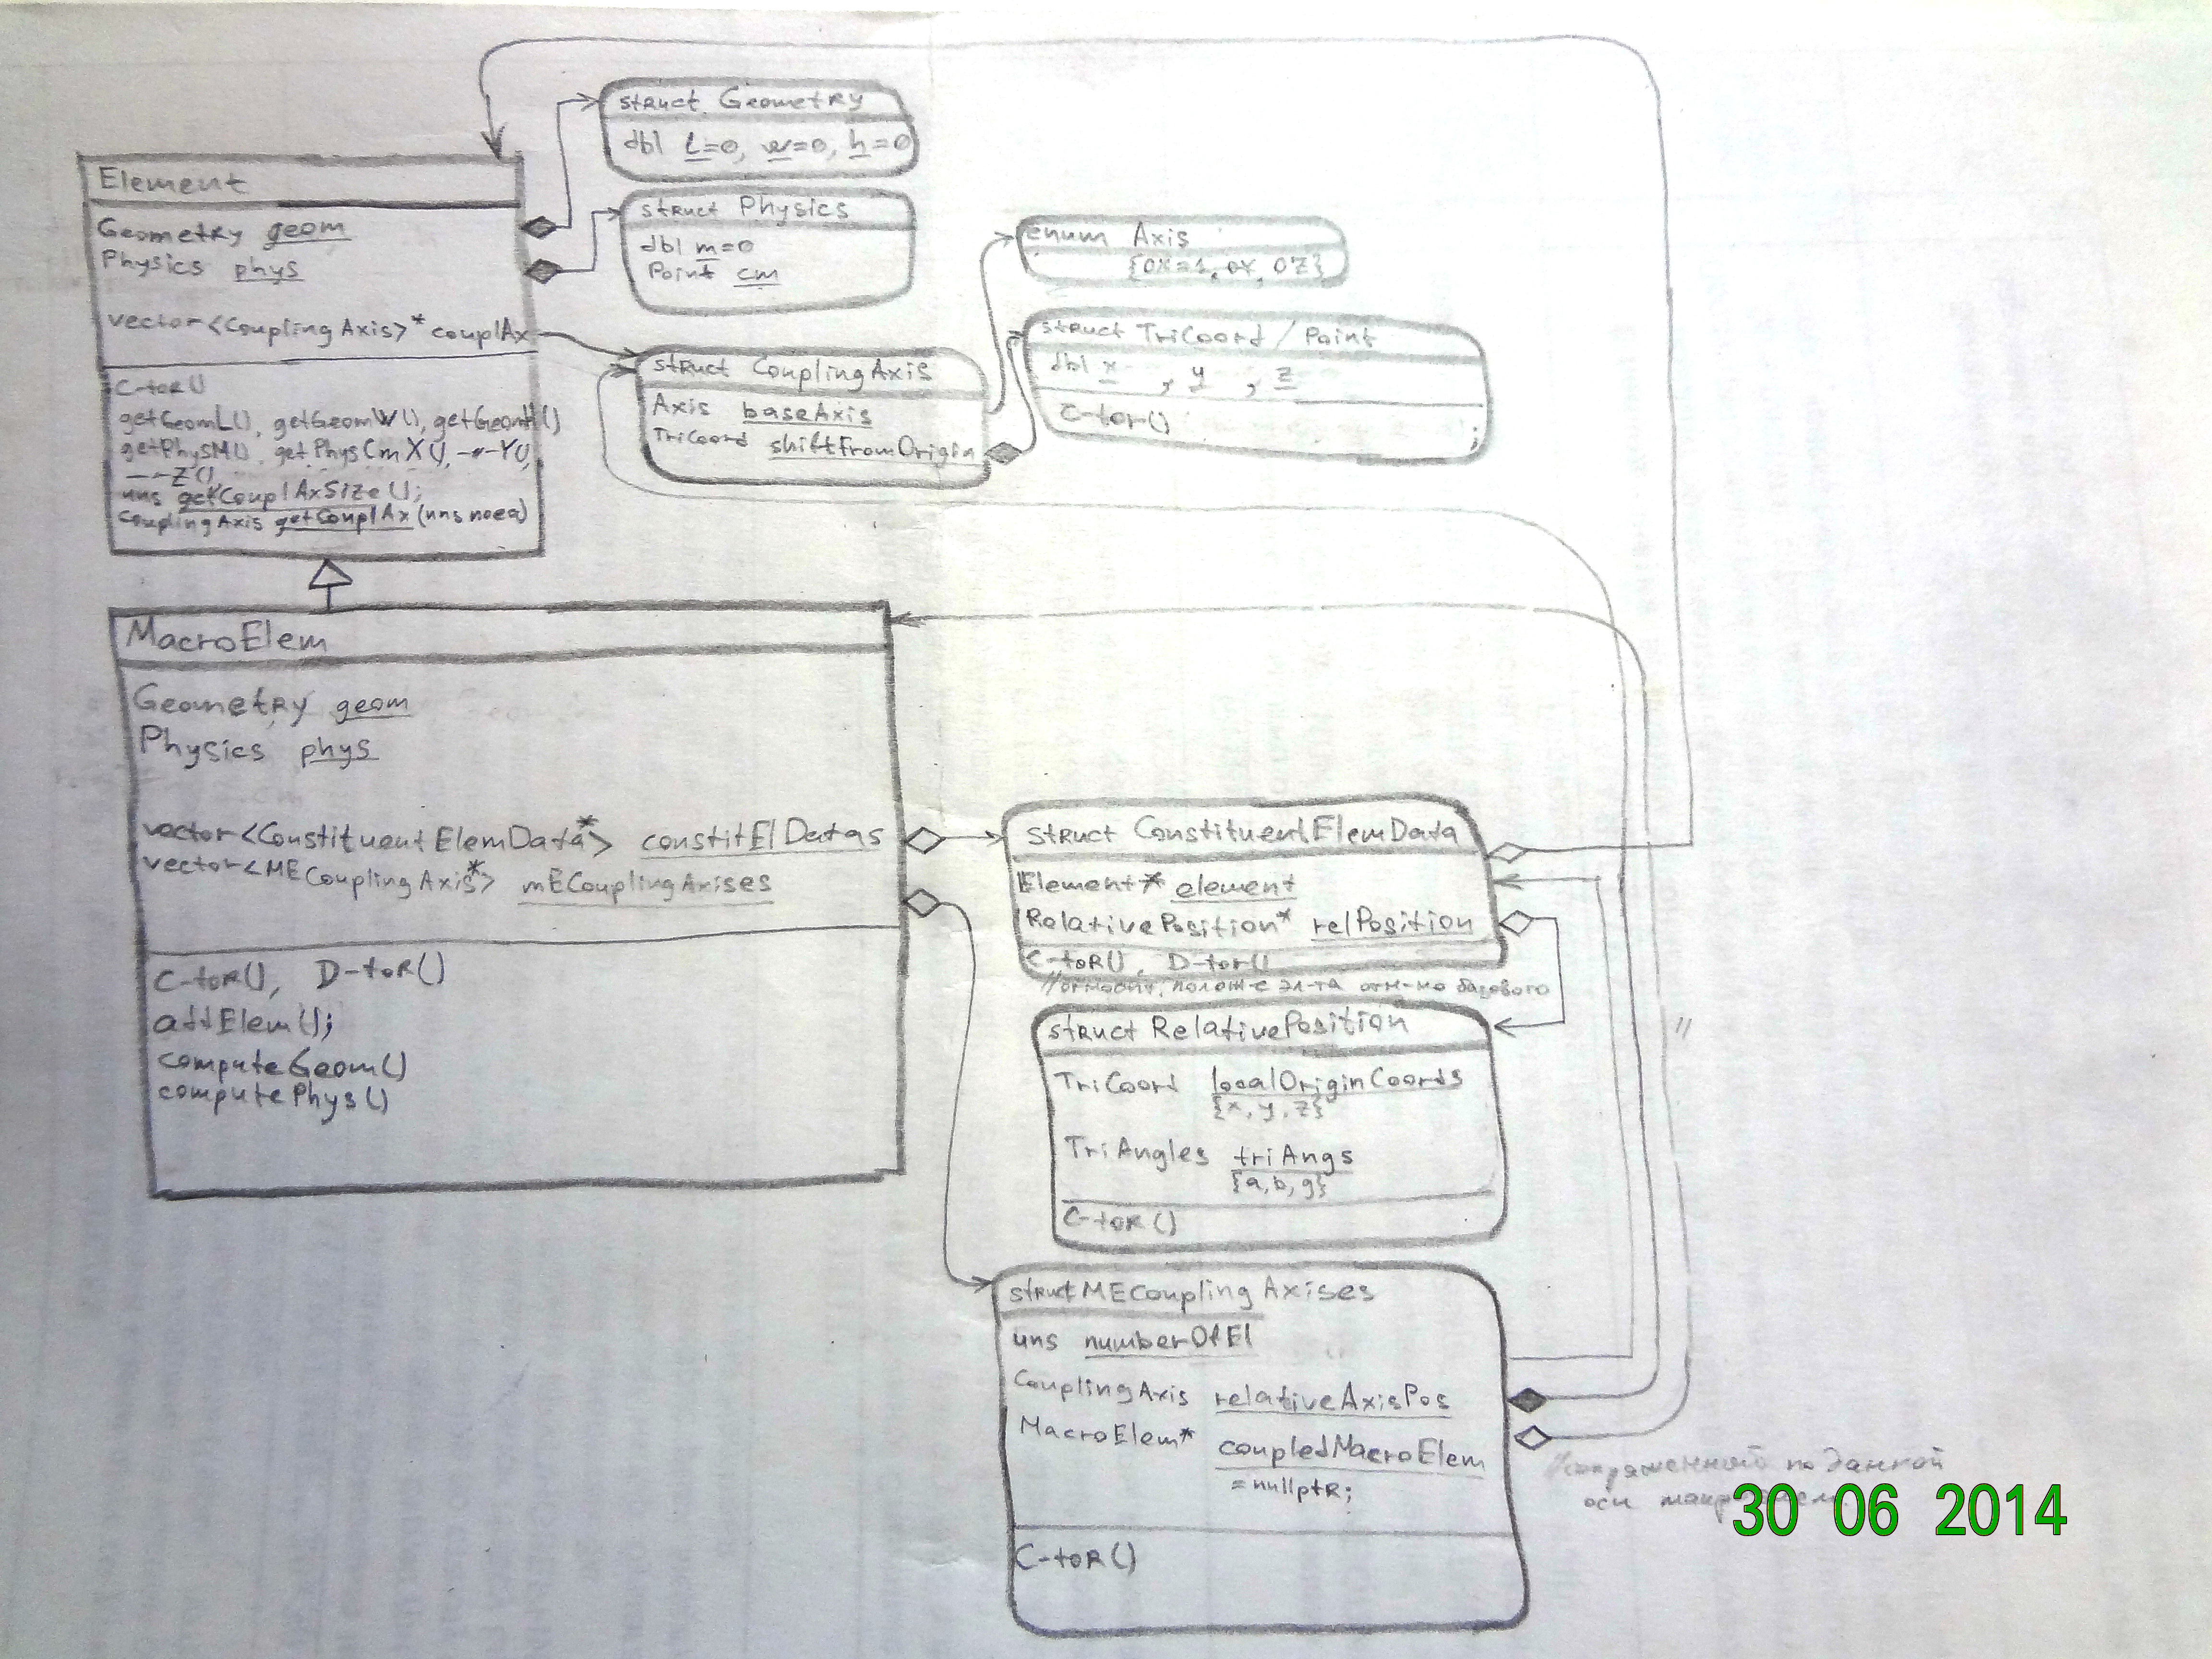 struct Geometry
dbl l=0, w=0, h=0
Element
Geometry geom
Physics phys
vector<CouplingAxis>* couplAx
C-tor()
getGeomL(), getGeomW(), getGeomH()
getPhysM(), getPhysCmX(), -"-Y(),
-"-Z(),
uns getCouplAxSize();
CouplingAxis getCouplAx (uns
struct Physics
dbl m=0
Point cm
enum Axis
{OX=1, OY, OZ}
struct TriCoord / Point
dbl x , y , z
C-tor() ;
struct CouplingAxis
Axis baseAxis
TriCoord shiftFromOrigin
MacroElem
Geometry geom
Physics phys
vector<ConstituentElemData*> constitElDatas
vector<MECouplingAxis*> mECouplingAxises
C-tor(), D-tor()
addElem();
computeGeom()
computePhys()
struct ConstituentElemData
Element* element
RelativePosition* relPosition
C-tor(), D-tor()
//относит. полож-е эл-та отн-но базового
struct RelativePosition
TriCoord localOriginCoords
{x, y, z}
TriAngles triAngs
{a, b, g}
C-tor()
//
struct MECouplingAxises
uns numberOfEl
CouplingAxis relativeAxisPos
MacroElem* coupledMacroElem
=nullptr;
C-tor()
//сопряженной по данной
оси
30 06 2014